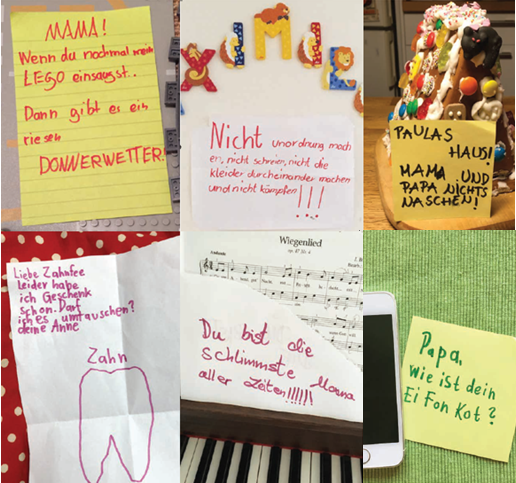 MAMA!
Wenn du nochmal
LEGO einsaugst..
Dann gibt es ein
riesen
DONNERWETTER!
XIME
Nicht unordnung mach
en, nicht schreien, nicht die
kleider durcheinander machen
und nicht kämpfen!!!
PAULAS
HAUS!
MAMA UND
PAPA NICHTS
NASCHEN!
Liebe Zahnfee
Leider habe
ich Geschenk
schon. Darf
ich es umtauschen?
deine Anne
Zahn
Wiegenlied
Du bist die
schlimmste Mama
aller Zeiten!!!!!!
Papa,
wie ist dein
Ei Fon Kot?